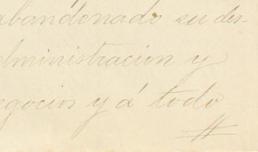 abandonado su des-
dministracion y
egocios y á todo